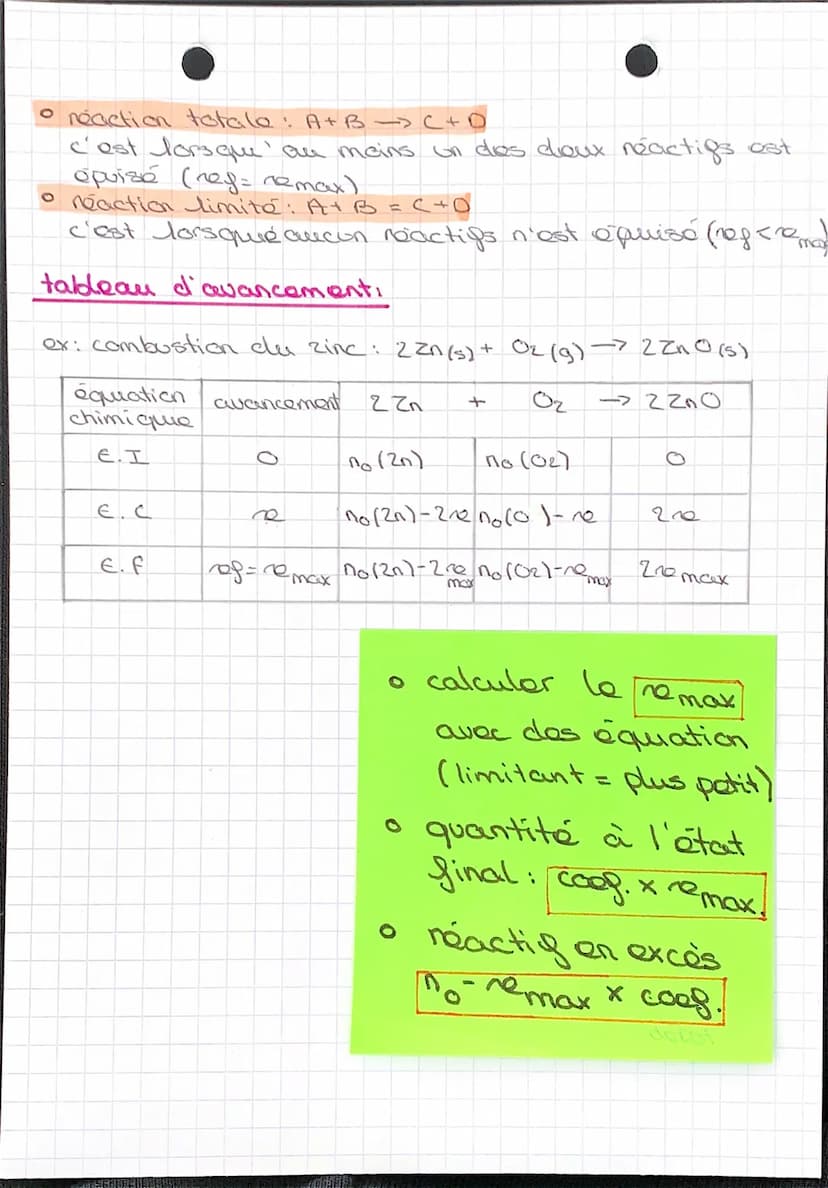 ○ réaction totale : A + B → C + D
c'est lorsqu'au moins un des deux réactifs est
épuisé (xf = xmax)
○ réaction limité : A + B = C + D
c'est lorsqué aucun réactifs n'est épuisé (xf < xmax)
tableau d'avancement :
ex : combustion du zinc : 2 Zn (s) + O2 (g) → 2 ZnO (s)
équation chimique avancement 2 Zn + O2 → 2 ZnO
E.I 0 n0 (Zn) n0 (O2) 0
E.C x n0 (Zn) - 2x n0 (O ) - x 2x
E.f xf = xmax n0 (Zn) - 2xmax n0 (O2) - xmax 2xmax
○ calculer le xmax
avec des équation
(limitant = plus petit)
○ quantité à l'état
final : coef. x xmax.
○ réactif en excès
n0 - xmax x coef.